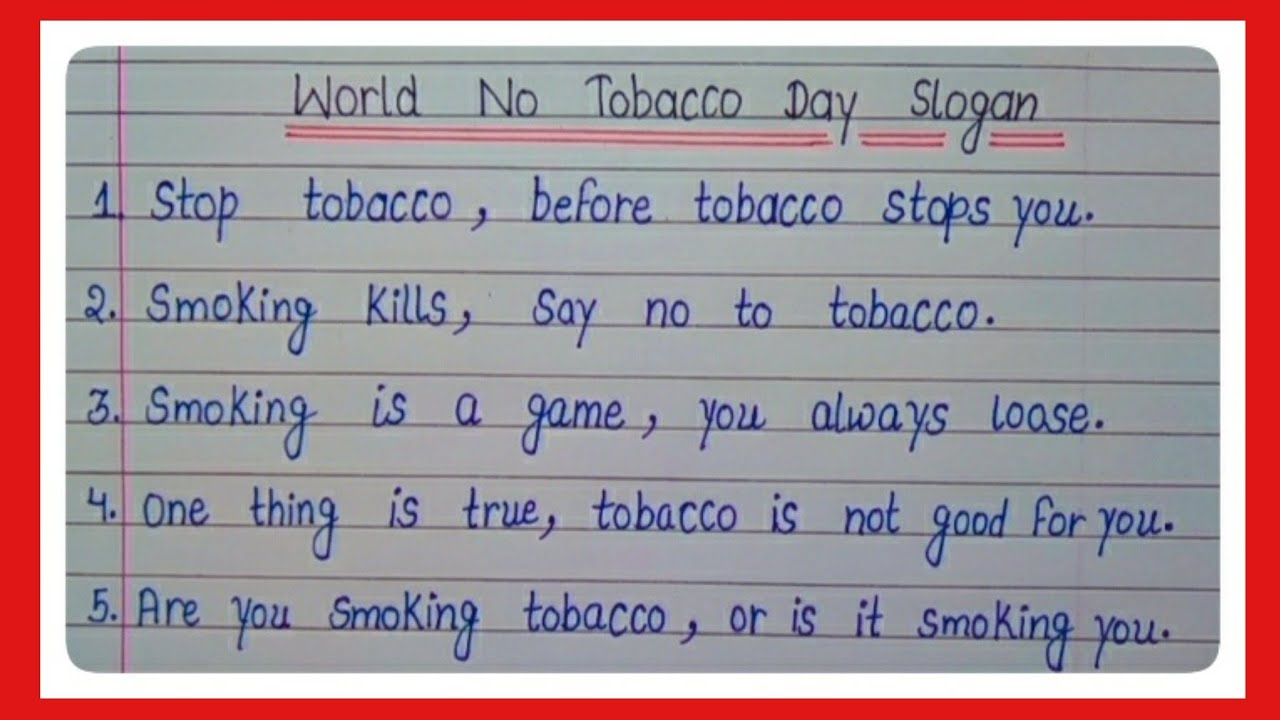 World No Tobacco Day Slogan
1. Stop tobacco, before tobacco stops you.
2. Smoking kills, say no to tobacco.
3. Smoking is a game, you always loase.
4. One thing is true, tobacco is not good for you.
5. Are you smoking tobacco, or is it smoking you.